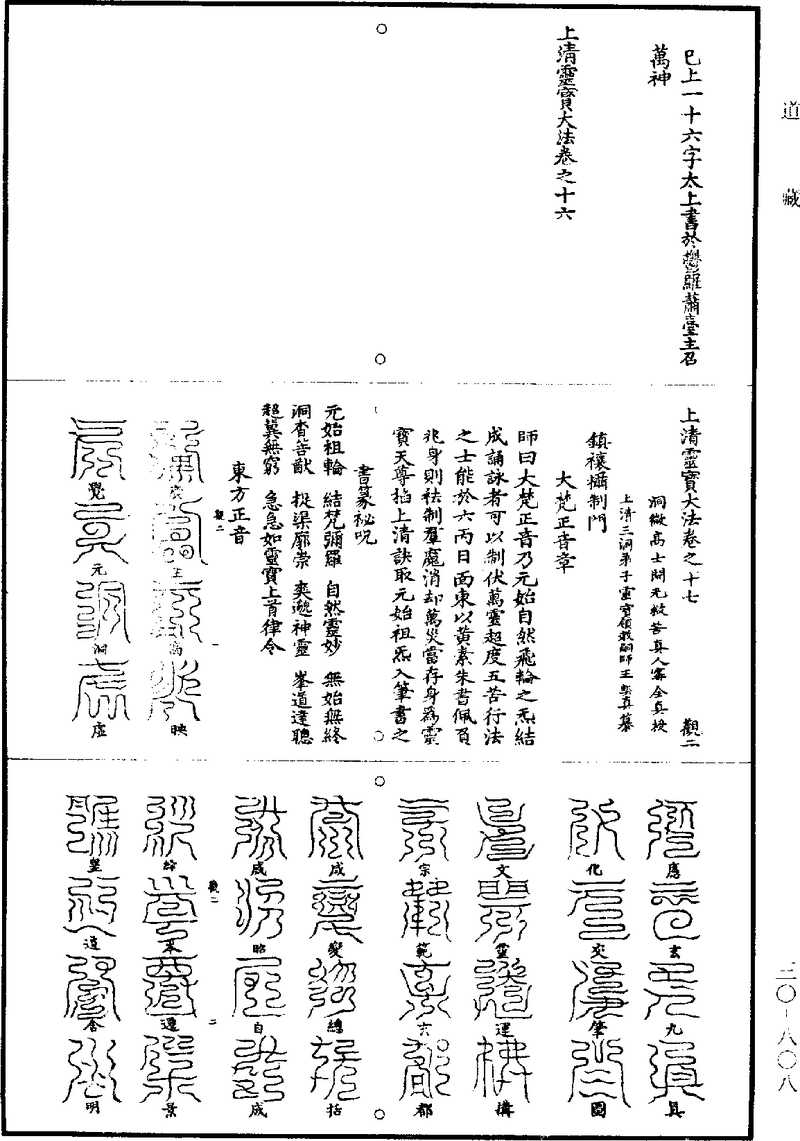 道藏
三〇-八〇八
已上一十六字太上書於鬱羅蕭臺主召
萬神
上清靈寶大法卷之十六
上清靈寶大法卷之十七
觀二
洞微高士開光救苦真人甯全真授
上清三洞弟子靈寶領教嗣師王契真纂
鎮禳攝制門
大梵正音章
師曰大梵正音乃元始自然飛輪之炁結
成誦詠者可以制伏萬靈超度五苦行法
之士能於六丙日面東以黃素朱書佩負
兆身則祛制羣魔消却萬災當存身為靈
寶天尊掐上清訣取元始祖炁入筆書之
書篆秘呪
元始祖輪 結梵彌羅 自然靈妙 無始無終
洞杳 獸 捉渠廓崇 奕邈神靈 峯道達聰
超冀無窮 急急如靈寶上首律令
東方正音
主高映
觀二
一
覺元洞虛
應玄九真
化交肇圖
文靈運構
宗範玄都
成變總括
咸昭自成
綜本還景
觀二
二
豎遠含明